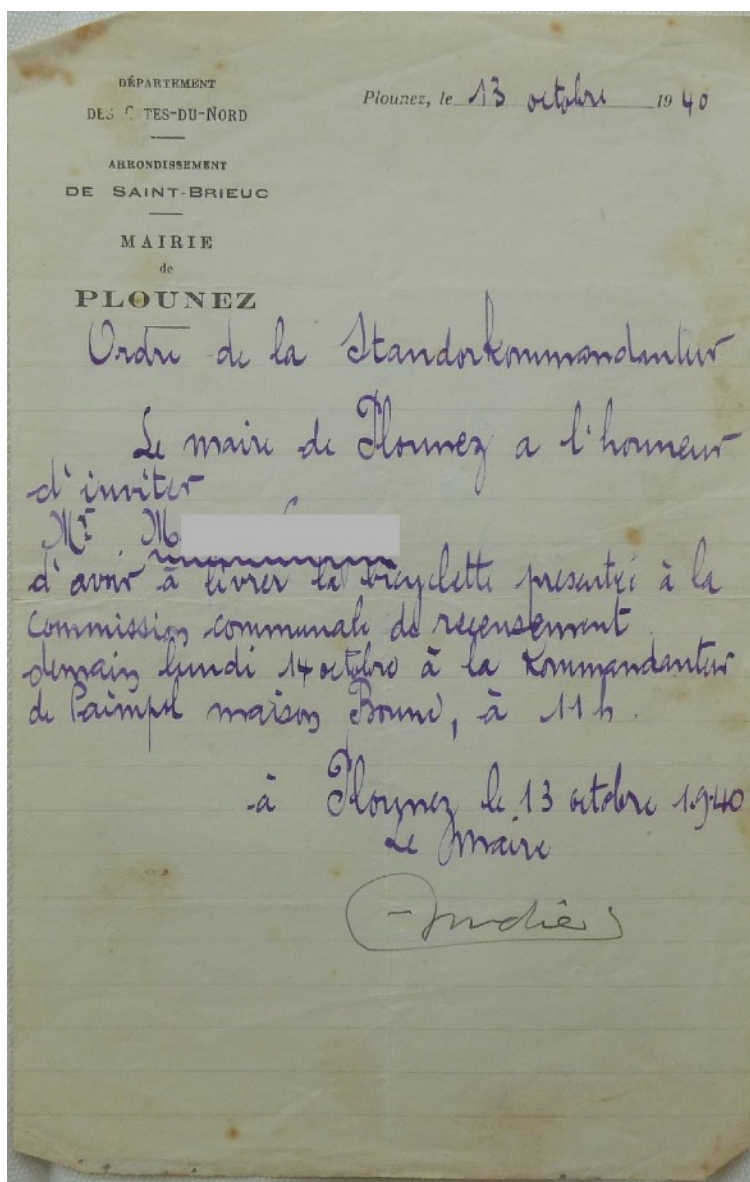 DÉPARTEMENT
DES C TES-DU-NORD
Plounez, le 13 octobre 1940
ARRONDISSEMENT
DE SAINT-BRIEUC
MAIRIE
de
PLOUNEZ
Ordre de la Standorkommandantur
Le maire de Plounez a l'honneur
d'inviter
Mr M
d'avoir à livrer la bicyclette présentée à la
Commission communale de recensement
demain lundi 14 octobre à la Kommandantur
de Paimpol maison Bonne, à 11 h.
à Plounez le 13 octobre 1940
Le Maire